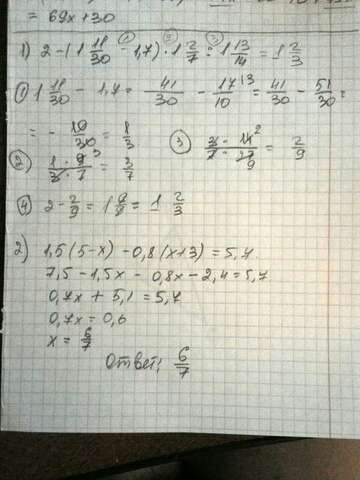 = 69x+30
1) 2-(1 11/30 - 1,7) · 1 2/7 : 1 13/14 = 1 2/3
① 1 11/30 - 1,7 = 41/30 - 17/10 ^3 = 41/30 - 51/30 =
= - 10/30 = 1/3
② 1·9^3/3·7 = 3/7
③ 3·14^2/7·27 9 = 2/9
④ 2-2/9 = 1 9/9 = 1 2/3
2) 1,5(5-x) -0,8(x+3) = 5,7.
7,5-1,5x - 0,8x-2,4=5,7
0,7x + 5,1 = 5,7
0,7x = 0,6
x = 6/7
Ответ: 6/7